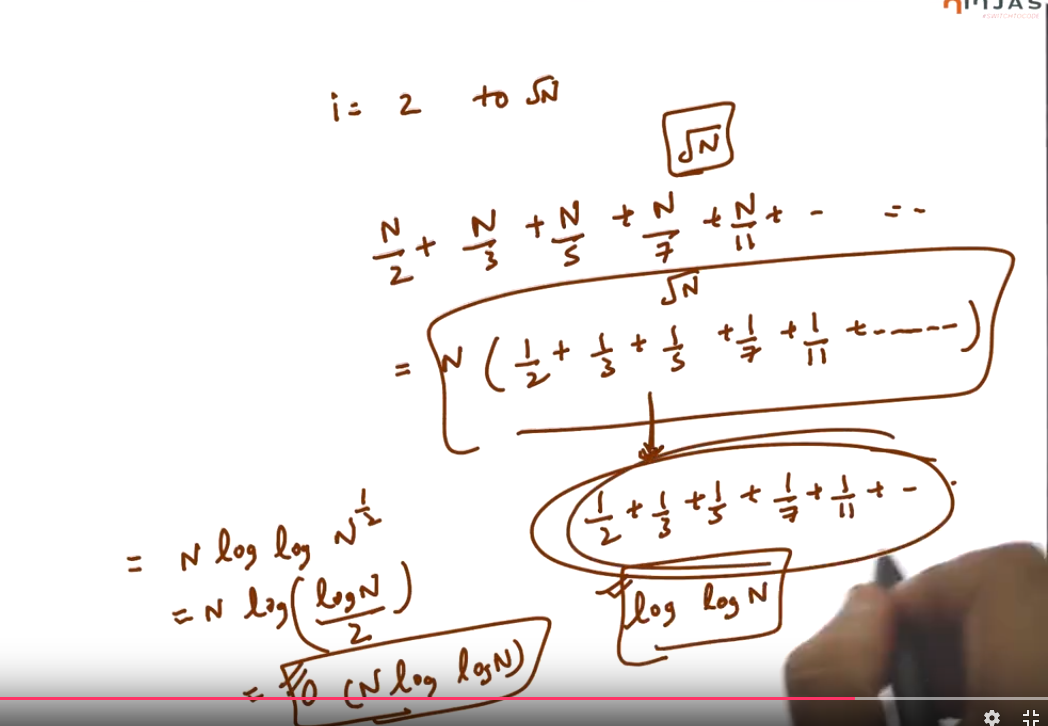 NINJAS
#SWITCHTOCODE
i = 2 to √N
√N
N/2 + N/3 + N/5 + N/7 + N/11 + - = -
√N
= N ( 1/2 + 1/3 + 1/5 + 1/7 + 1/11 + ------ )
1/2 + 1/3 + 1/5 + 1/7 + 1/11 + - .
log log N
= N log log N^1/2
= N log ( log N / 2 )
= O (N log log N)